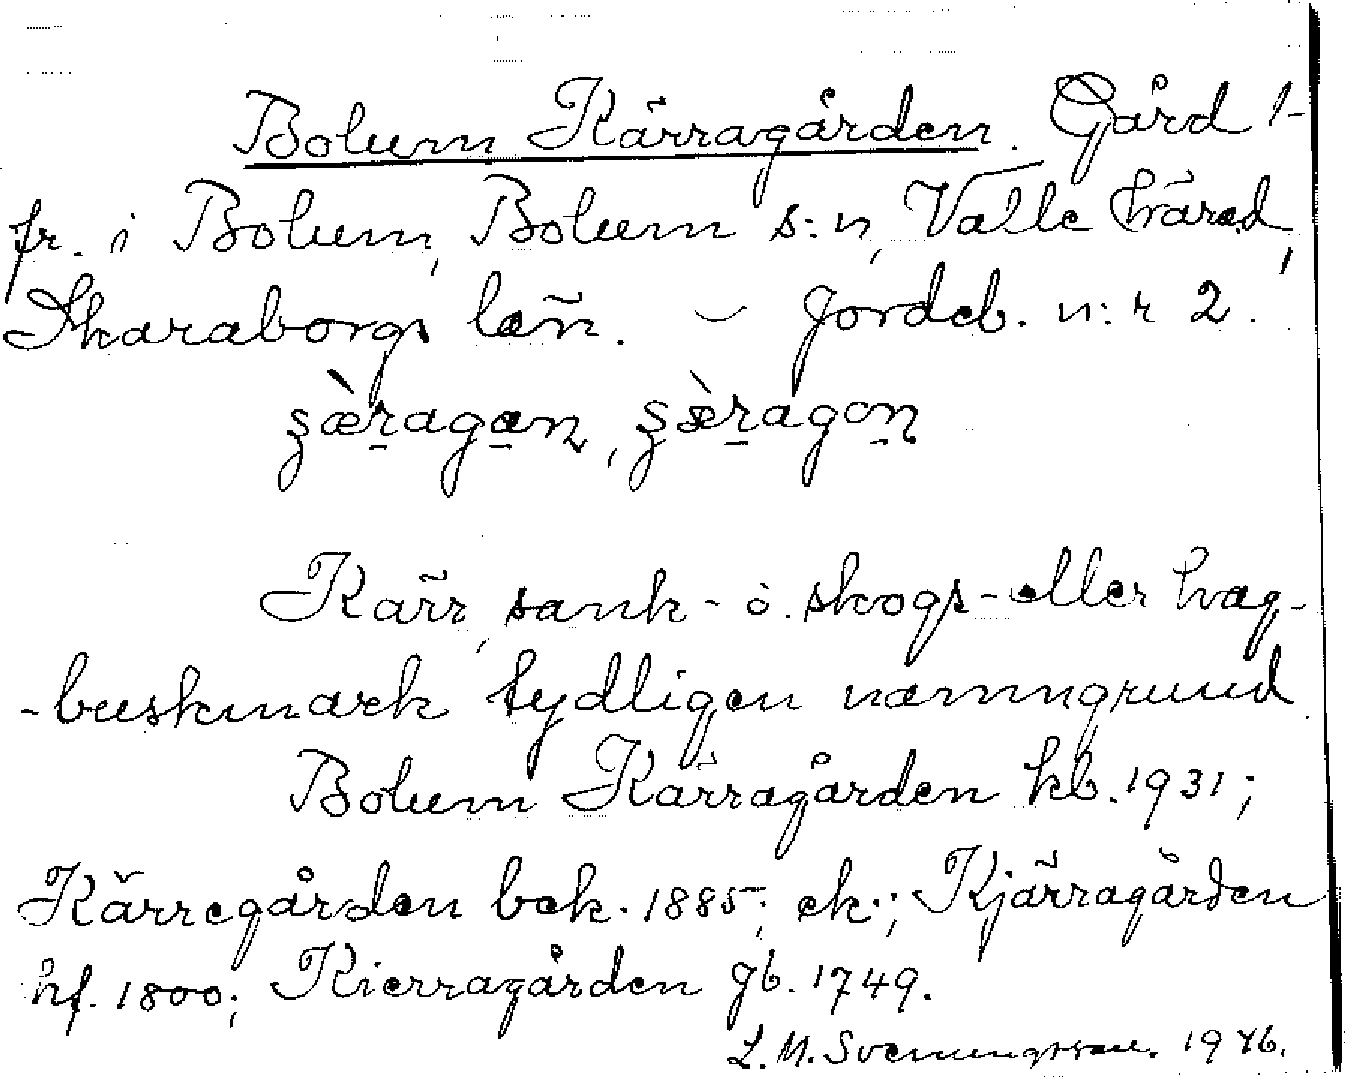 Bolum Kärragården. Gård 1-
fr. i Bolum, Bolum s:n, Valle härad,
Skaraborgs län. – Jordeb. n:r 2.
Kärr, sank- o. skogs- eller hag-
-buskmark tydligen namngrund
Bolum Kärragården kb. 1931;
Kärregården bek. 1885; ek.; Kjärragården
hf. 1800; Kierragården gb. 1749.
L. M. Svenungsson. 1946.